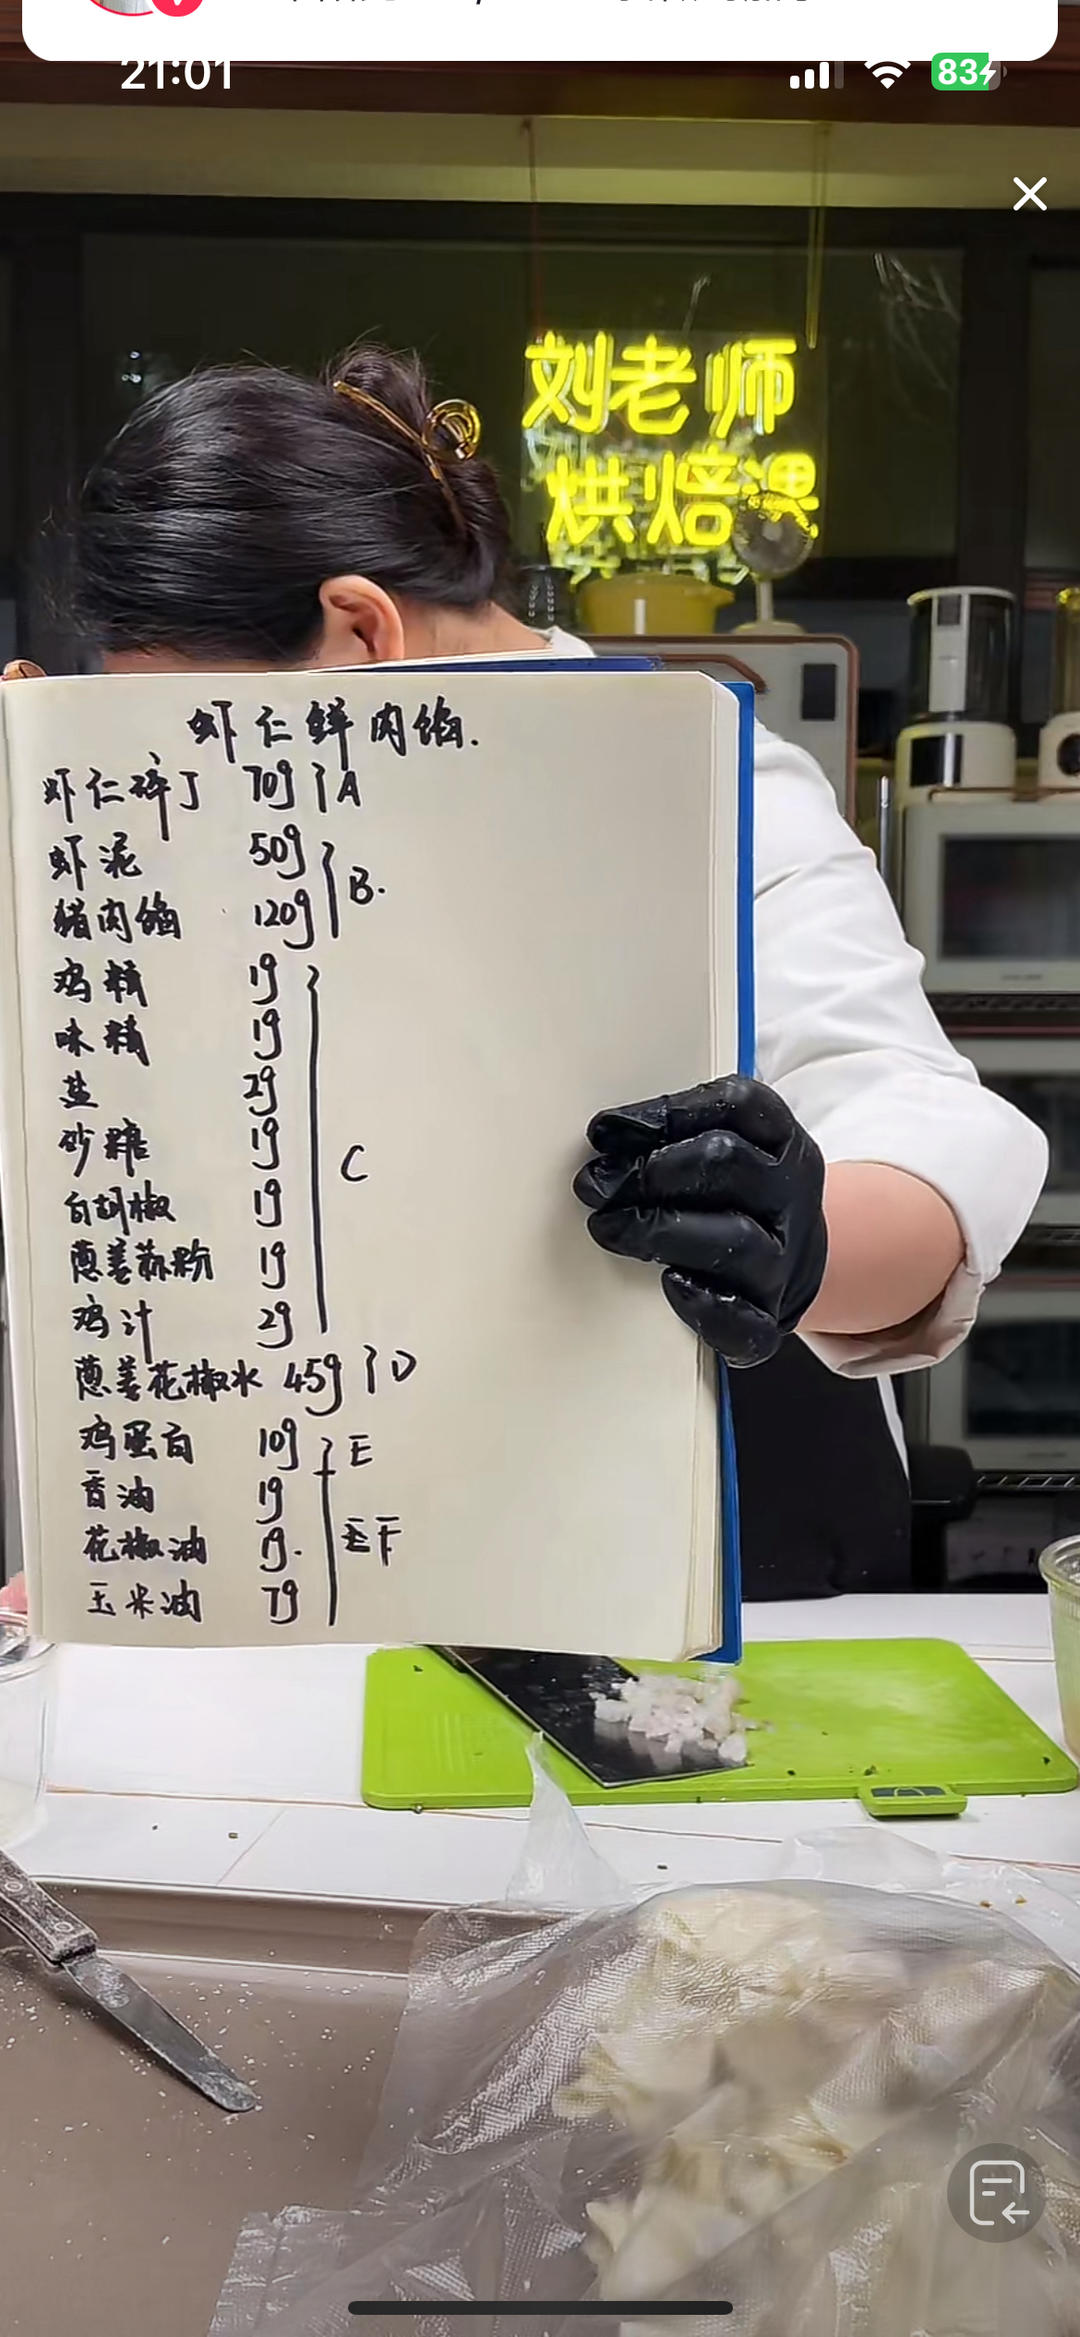 21:01
83
刘老师
烘焙课
虾仁鲜肉馅.
虾仁碎丁 70g } A
虾泥 50g
猪肉馅 120g } B.
鸡精 1g
味精 1g
盐 2g
砂糖 1g } C
白胡椒 1g
葱姜蒜粉 1g
鸡汁 2g
葱姜花椒水 45g } D
鸡蛋白 10g } E
香油 1g
花椒油 1g. } F
玉米油 7g